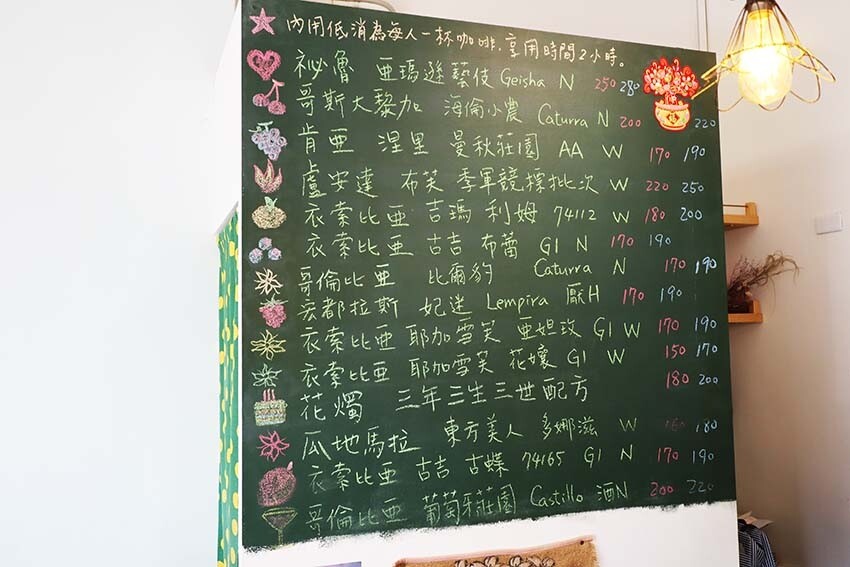 內用低消為每人一杯咖啡,享用時間2小時。
祕魯 亞瑪遜藝伎 Geisha N 250 280
哥斯大黎加 海倫小農 Caturra N 200 220
肯亞 涅里 曼秋莊園 AA W 170 190
盧安達 布芙 季軍競標批次 W 220 250
衣索比亞 吉瑪 利姆 74112 W 180 200
衣索比亞 古吉 布蕾 G1 N 170 190
哥倫比亞 比爾豹 Caturra N 170 190
宏都拉斯 妃迷 Lempira 厭H 170 190
衣索比亞 耶加雪芙 亞妲玫 G1 W 170 190
衣索比亞 耶加雪芙 花孃 G1 W 150 170
花燭 三年三生三世配方 180 200
瓜地馬拉 東方美人 多娜滋 W 160 180
衣索比亞 古吉 古蝶 74165 G1 N 170 190
哥倫比亞 葡萄牙莊園 Castillo 酒N 200 220